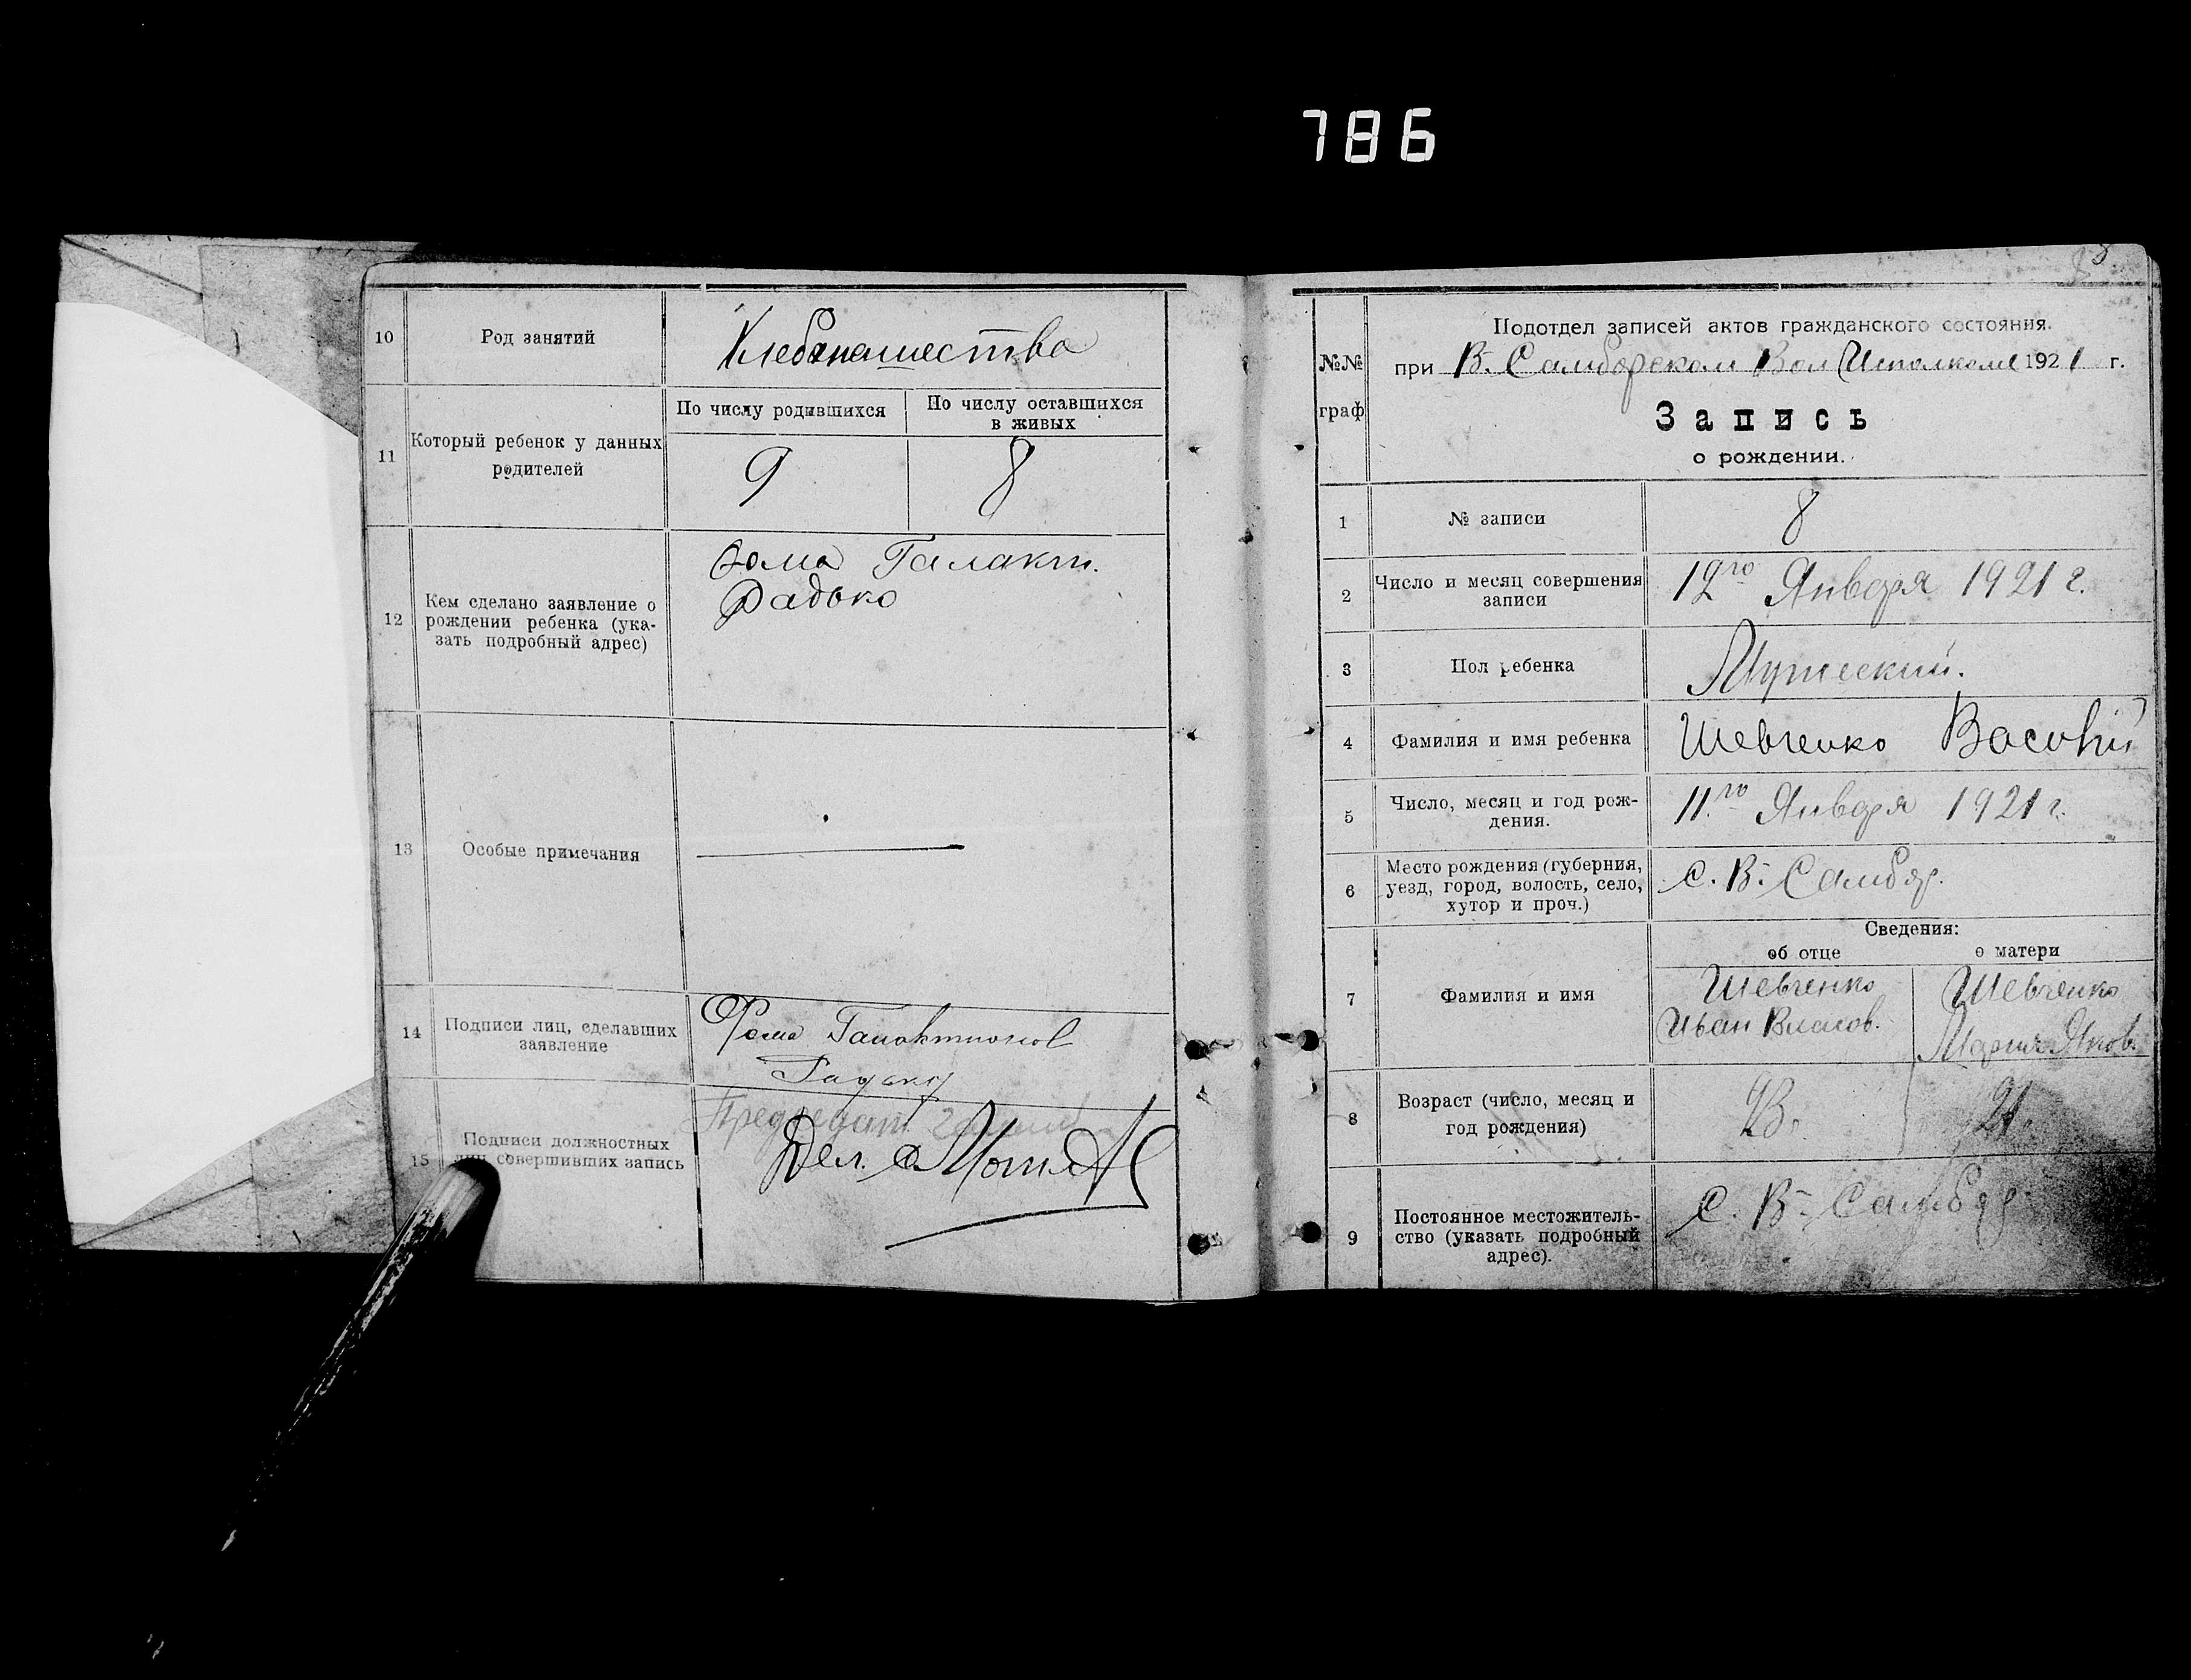 786
10
Род занятий
Хлебопашества
11
Который ребенок у данных
родителей
По числу родившихся
По числу оставшихся
в живых
9
8
12
Кем сделано заявление о
рождении ребенка (ука-
зать подробный адрес)
Фома Галакт.
Радько
13
Особые примечания
14
Подписи лиц, сделавших
заявление
Фома Галактионов
15
Подписи должностных
лиц совершивших запись
Дел.
8
№№
граф
Подотдел записей актов гражданского состояния.
при В. Самборском Вол Исполкоме 1921 г.
Запись
о рождении.
1
№ записи
8
2
Число и месяц совершения
записи
12го Января 1921 г.
3
Пол ребенка
Мужеский.
4
Фамилия и имя ребенка
Шевченко Василий
5
Число, месяц и год рож-
дения.
11го Января 1921 г.
6
Место рождения (губерния,
уезд, город, волость, село,
хутор и проч.)
с. В. Самбор.
Сведения:
об отце
о матери
7
Фамилия и имя
Шевченко
Иван Власов.
Шевченко
Мария Яков.
8
Возраст (число, месяц и
год рождения)
9
Постоянное местожитель-
ство (указать подробный
адрес).
с. В. Самбор